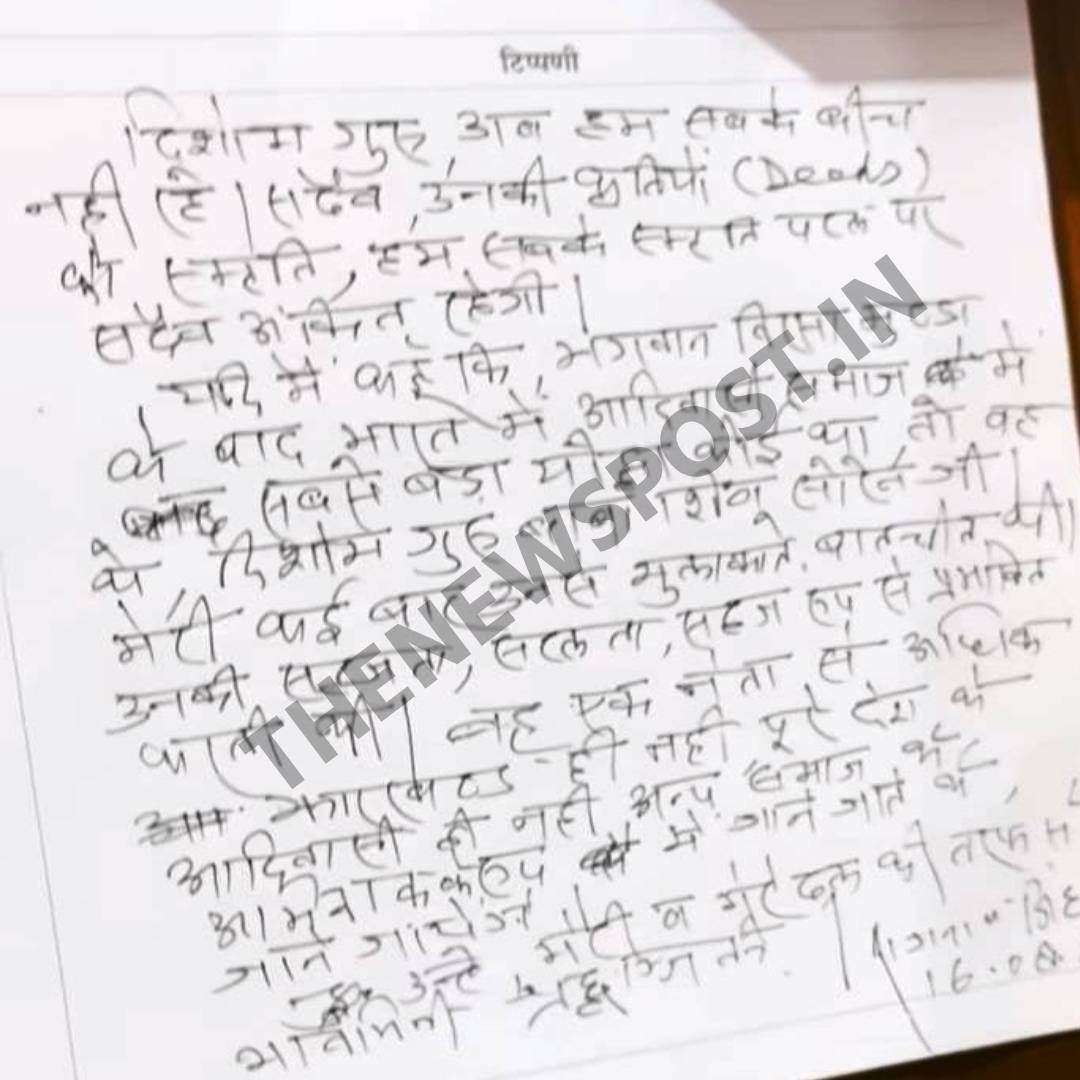 टिप्पणी
दिशोम गुरु अब हम सबके बीच
नही रहे। सदैव, उनकी कृतियों (Deeds)
की स्मृति, हम सबके स्मृति पटल पर
सदैव अंकित रहेगी।
यदि मैं कहूं कि, भगवान बिरसा मुण्डा
के बाद भारत में आदिवासी समाज में
सबसे बड़ा योद्धा कोई था तो वह
थे, दिशोम गुरु शिबू सोरेन जी।
मेरी कई बार उनसे मुलाकाते, बातचीत थी।
उनकी सहजता, सरलता, सहज रूप से प्रभावित
करती थी। वह एक नेता से अधिक
झारखण्ड ही नही पूरे देश के
आदिवासी ही नही अन्य समाज के
अभिभावक के रूप में माने जाते थे,
माने जायेंगे
उन्हे मेरी व मेरे दल की तरफ से
भावभिनी श्रद्धान्जिली
16.08.
THENEWSPOST.IN